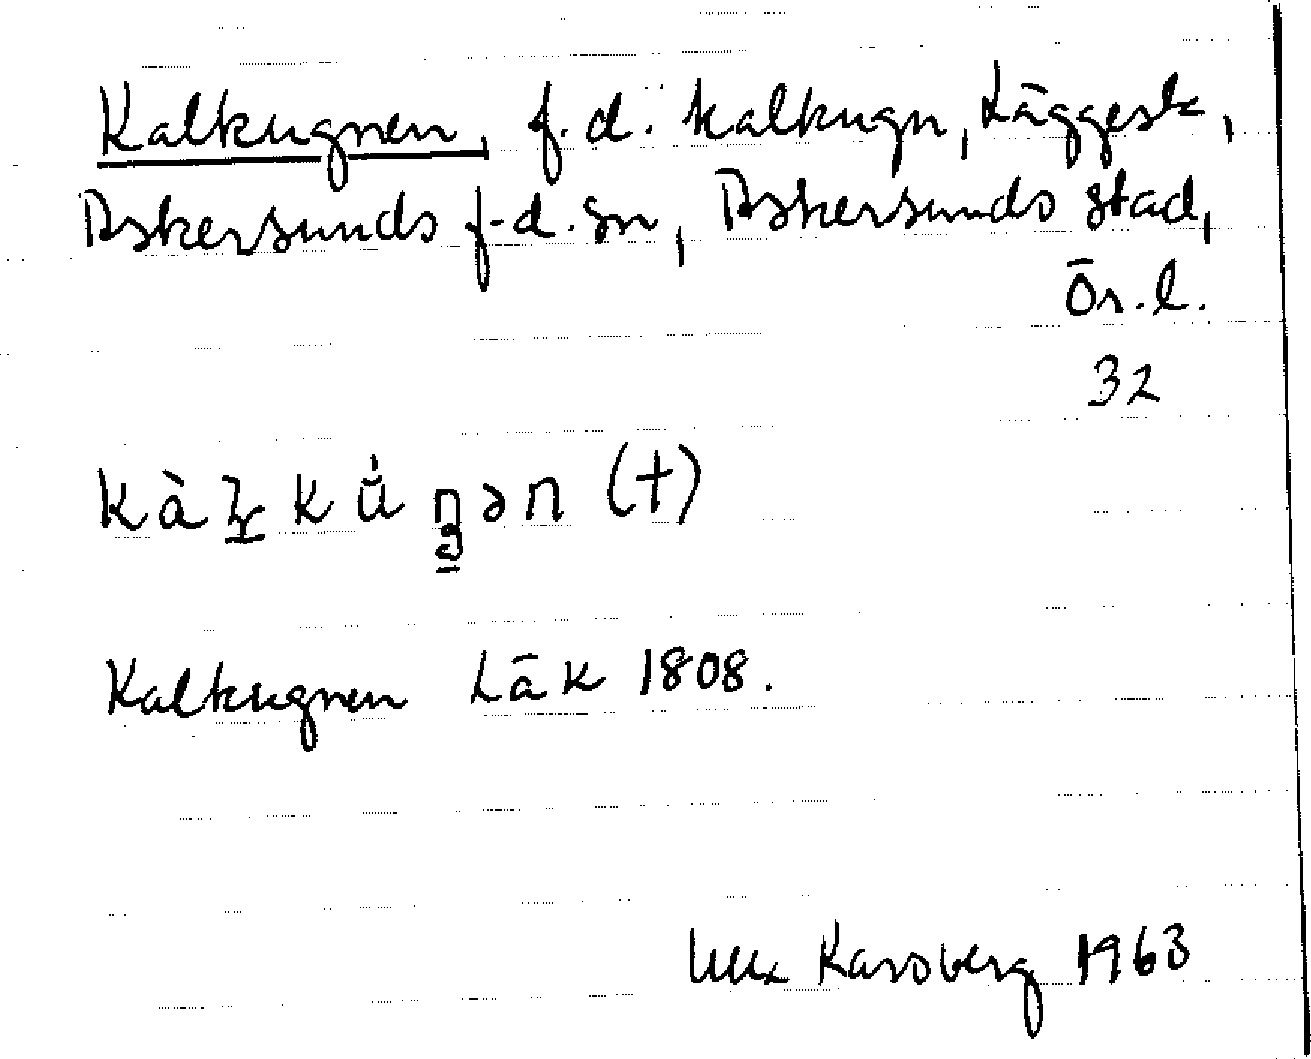 Kalkugnen, f.d. kalkugn, Läggesta,
Askersunds f.d. sn, Askersunds stad,
Ör. l.
32
(+)
Kalkugnen LäK 1808.
Karsberg 1963